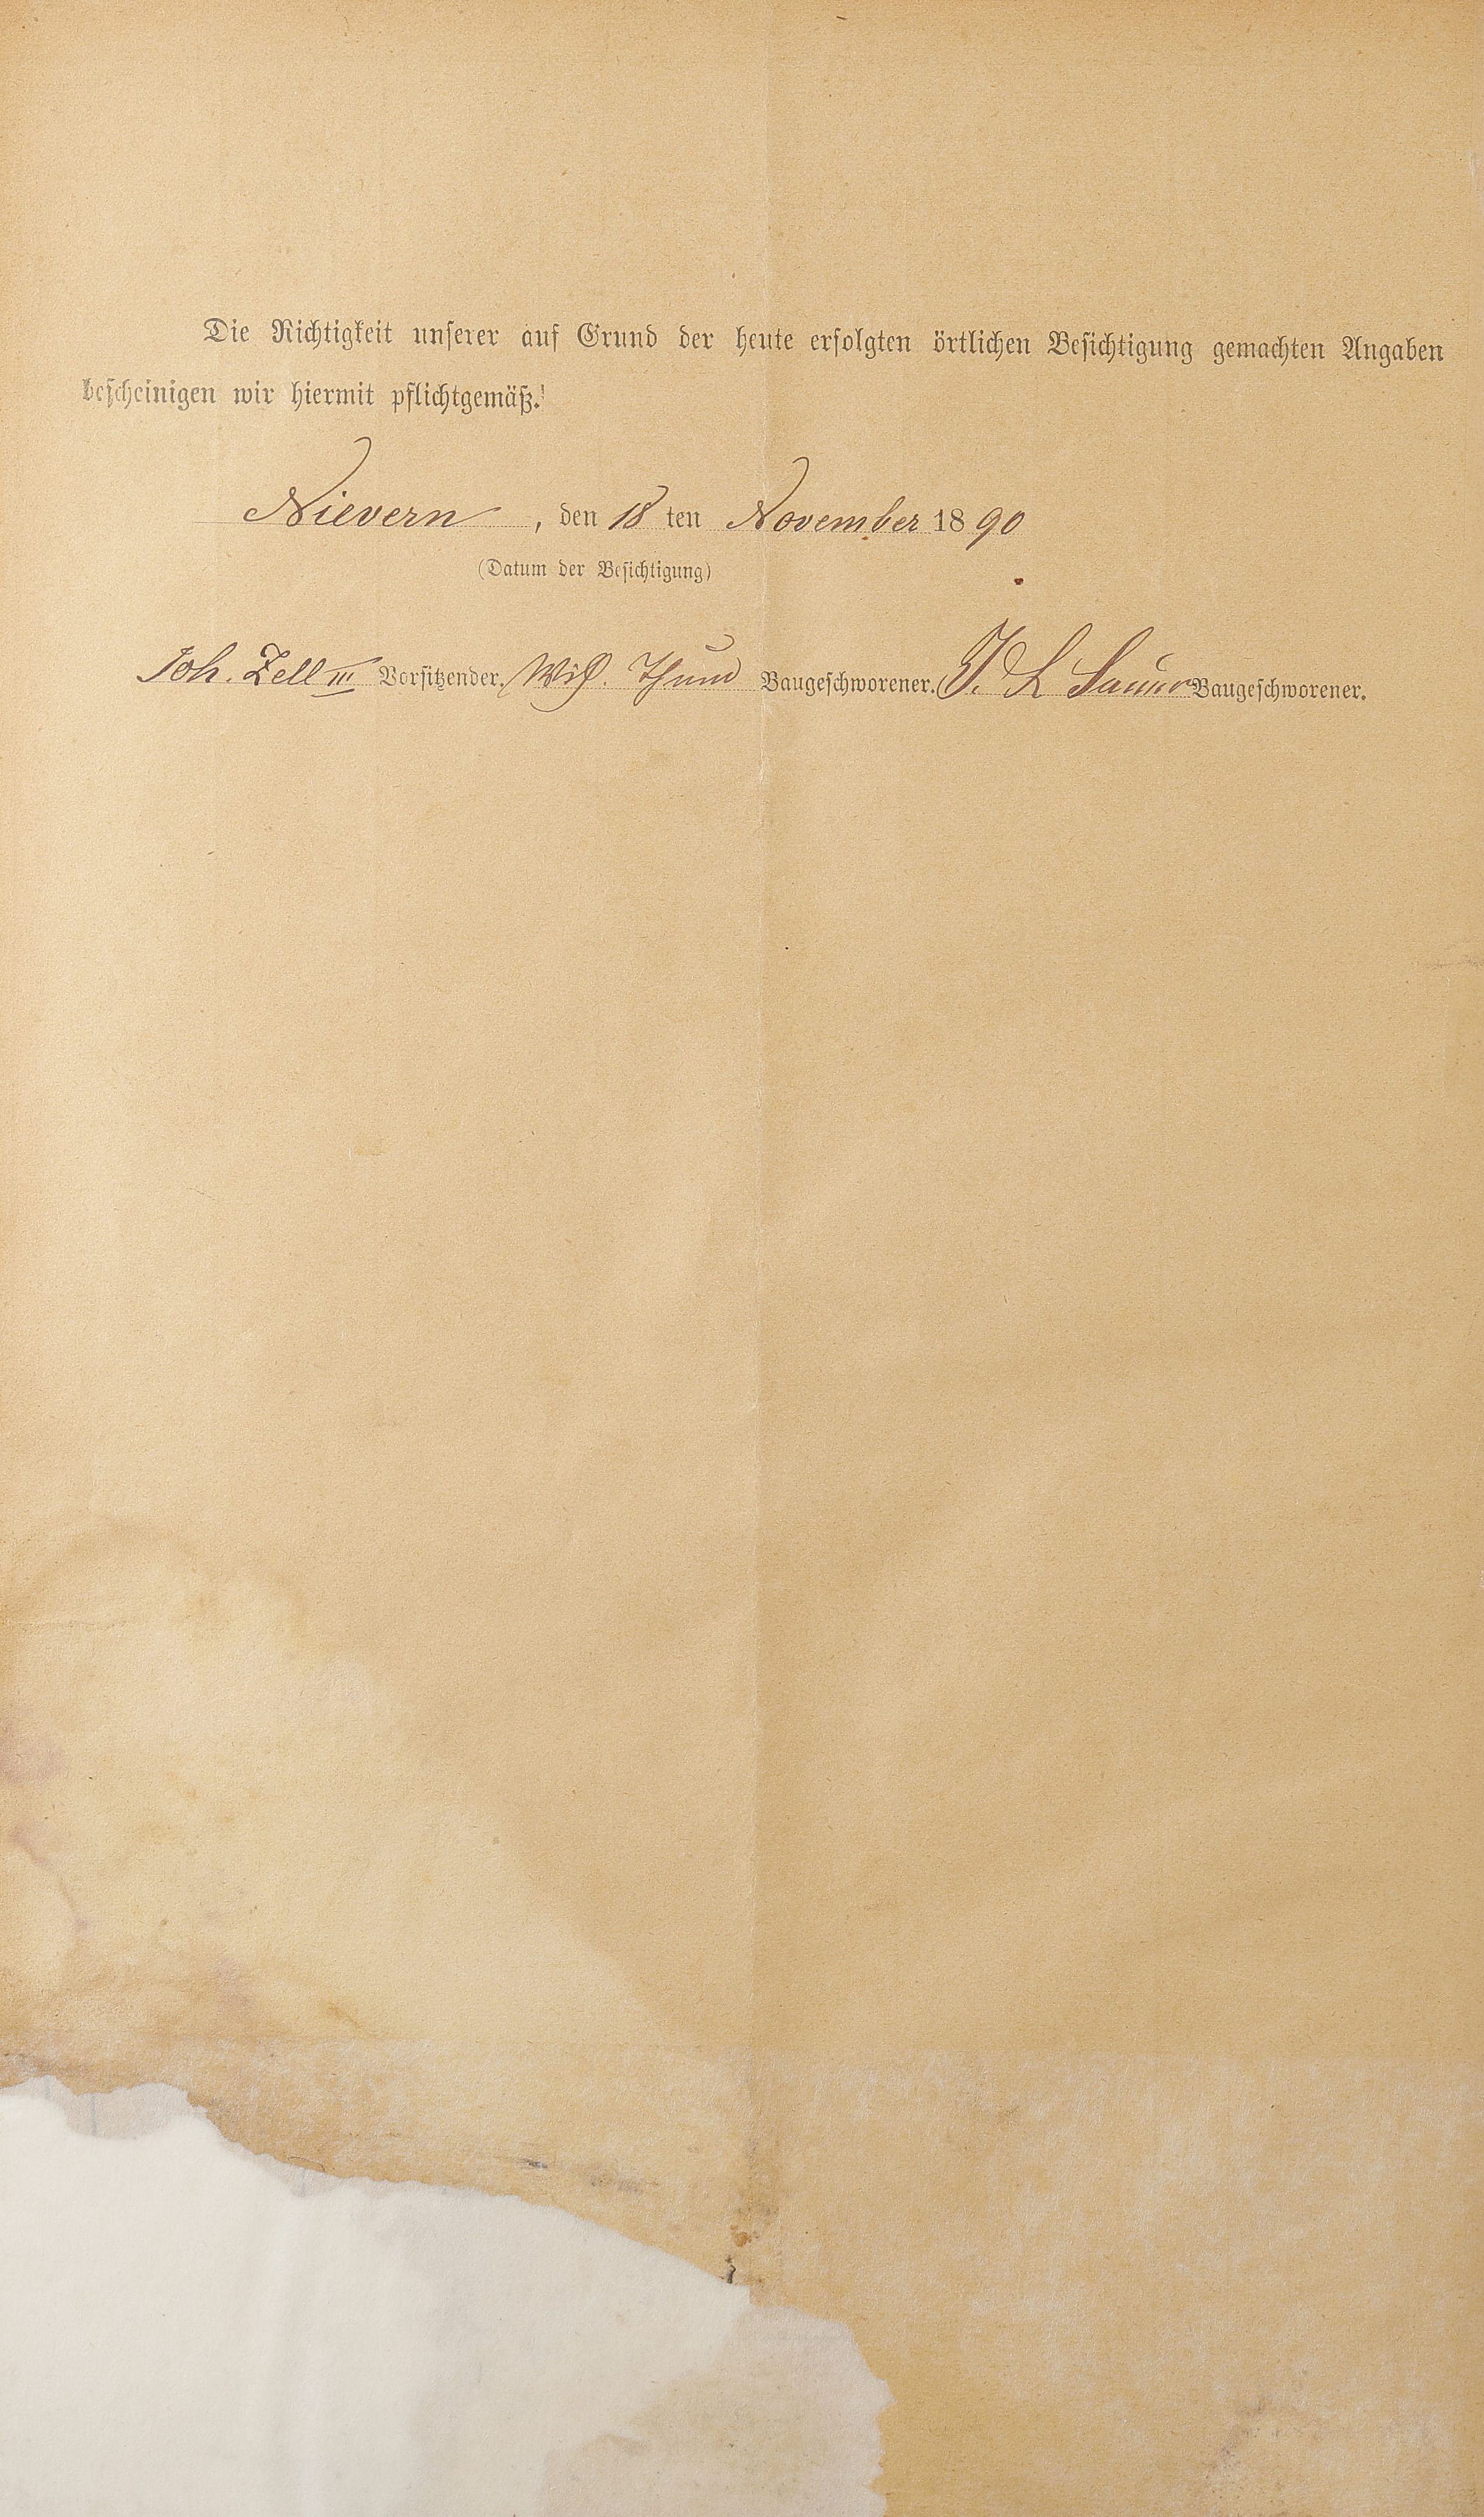 Die Richtigkeit unserer auf Grund der heute erfolgten örtlichen Besichtigung gemachten Angaben
bescheinigen wir hiermit pflichtgemäß.
Nievern, den 18 ten November 1890
(Datum der Besichtigung)
Joh. Zell III Vorsitzender. Thum Baugeschworener. J. L Baugeschworener.